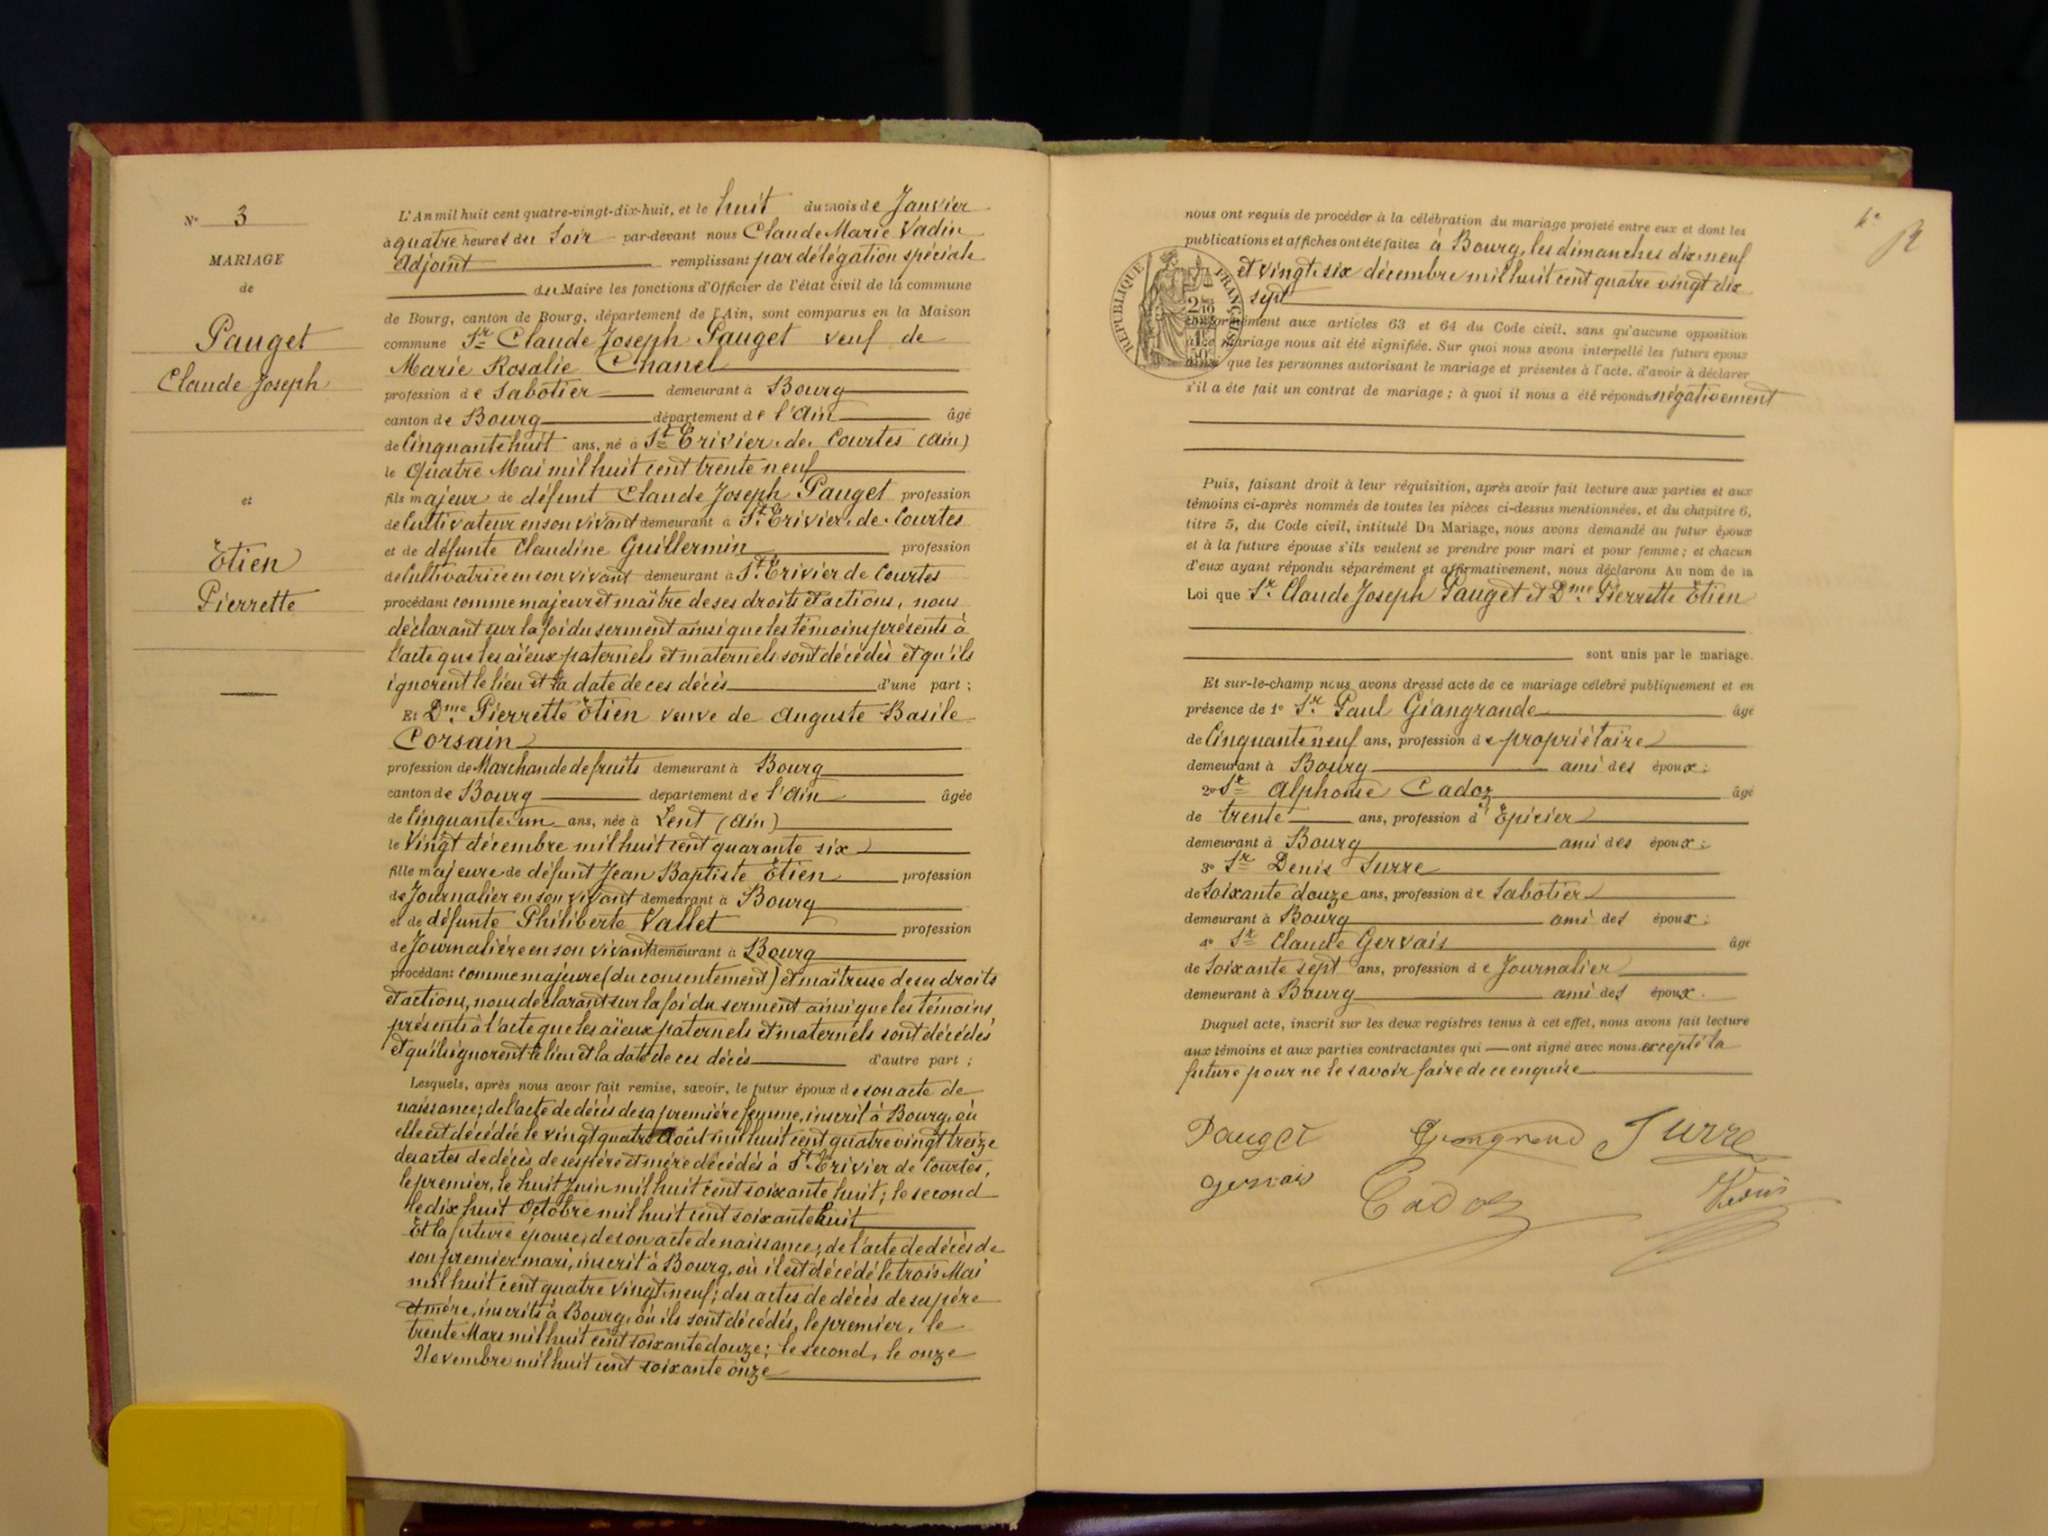 N° 3
MARIAGE
de
Pauget
Claude Joseph
et
Etien
Pierrette
L'An mil huit cent quatre-vingt-dix-huit, et le huit du mois de Janvier
à quatre heures du Soir par-devant nous Claude Marie Vadin
Adjoint remplissant par délégation spéciale
du Maire les fonctions d'Officier de l'état civil de la commune
de Bourg, canton de Bourg, département de l'Ain, sont comparus en la Maison
commune Sr Claude Joseph Pauget veuf de
Marie Rosalie Chanel
profession de Sabotier demeurant à Bourg
canton de Bourg département de l'Ain âgé
de Cinquante huit ans, né à St Trivier de Courtes (Ain)
le Quatre Mai mil huit cent trente neuf
fils majeur de défunt Claude Joseph Pauget profession
de Cultivateur en son vivant demeurant à St Trivier de Courtes
et de défunte Claudine Guillermin profession
de Cultivatrice en son vivant demeurant à St Trivier de Courtes
procédant comme majeur et maître de ses droits et actions, nous
déclarant sur la foi du serment ainsi que les témoins présents à
l'acte que les aïeux paternels et maternels sont décédés et qu'ils
ignorent le lieu et la date de ces décès d'une part ;
Et Dme Pierrette Etien veuve de Auguste Basile
Corsain
profession de Marchande de fruits demeurant à Bourg
canton de Bourg département de l'Ain âgée
de Cinquante un ans, née à Lent (Ain)
le Vingt décembre mil huit cent quarante six
fille majeure de défunt Jean Baptiste Etien profession
de Journalier en son vivant demeurant à Bourg
et de défunte Philiberte Vallet profession
de Journalière en son vivant demeurant à Bourg
procédant comme majeure (du consentement) et maîtresse de ses droits
et actions, nous déclarant sur la foi du serment ainsi que les témoins
présents à l'acte que les aïeux paternels et maternels sont décédés
et qu'ils ignorent le lieu et la date de ces décès d'autre part ;
Lesquels, après nous avoir fait remise, savoir, le futur époux de son acte de
naissance ; de l'acte de décès de sa première femme, inscrit à Bourg, où
elle est décédée le vingt quatre Août mil huit cent quatre vingt treize
des actes de décès de ses père et mère décédés à St Trivier de Courtes,
le premier, le huit Juin mil huit cent soixante huit ; le second
le dix huit Octobre mil huit cent soixante huit
Et la future épouse, de son acte de naissance ; de l'acte de décès de
son premier mari, inscrit à Bourg, où il est décédé le trois Mai
mil huit cent quatre vingt neuf ; des actes de décès de ses père
et mère, inscrits à Bourg, où ils sont décédés, le premier, le
trente Mars mil huit cent soixante douze ; le second, le onze
Novembre mil huit cent soixante onze
nous ont requis de procéder à la célébration du mariage projeté entre eux et dont les
publications et affiches ont été faites à Bourg, les dimanches dix neuf
et vingt six décembre mil huit cent quatre vingt dix
sept
RÉPUBLIQUE FRANÇAISE
conformément aux articles 63 et 64 du Code civil, sans qu'aucune opposition
à ce mariage nous ait été signifiée. Sur quoi nous avons interpellé les futurs époux
ainsi que les personnes autorisant le mariage et présentes à l'acte, d'avoir à déclarer
s'il a été fait un contrat de mariage ; à quoi il nous a été répondu négativement
Puis, faisant droit à leur réquisition, après avoir fait lecture aux parties et aux
témoins ci-après nommés de toutes les pièces ci-dessus mentionnées, et du chapitre 6,
titre 5, du Code civil, intitulé Du Mariage, nous avons demandé au futur époux
et à la future épouse s'ils veulent se prendre pour mari et pour femme ; et chacun
d'eux ayant répondu séparément et affirmativement, nous déclarons Au nom de la
Loi que Sr Claude Joseph Pauget et Dme Pierrette Etien
sont unis par le mariage.
Et sur-le-champ nous avons dressé acte de ce mariage célébré publiquement et en
présence de 1° Sr Paul Giangrande âgé
de Cinquante neuf ans, profession de propriétaire
demeurant à Bourg ami des époux ;
2° Sr Alphonse Cadoz âgé
de trente ans, profession d'Epicier
demeurant à Bourg ami des époux ;
3° Sr Denis Surre
de Soixante douze ans, profession de Sabotier
demeurant à Bourg ami des époux ;
4° Sr Claude Gervais âgé
de Soixante sept ans, profession de Journalier
demeurant à Bourg ami des époux.
Duquel acte, inscrit sur les deux registres tenus à cet effet, nous avons fait lecture
aux témoins et aux parties contractantes qui ont signé avec nous excepté la
future pour ne le savoir faire de ce enquise
Pauget Giangrand Surre
gervais Cadoz